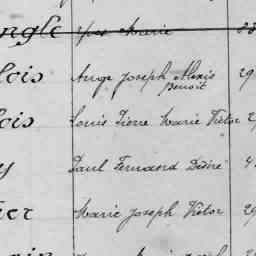 ngle Yves Marie
lois Ange Joseph Alexis 29
Benoit
lois Louis Pierre Marie Victor 2
y Paul Fernand Désiré 4
ier Marie Joseph Victor 29